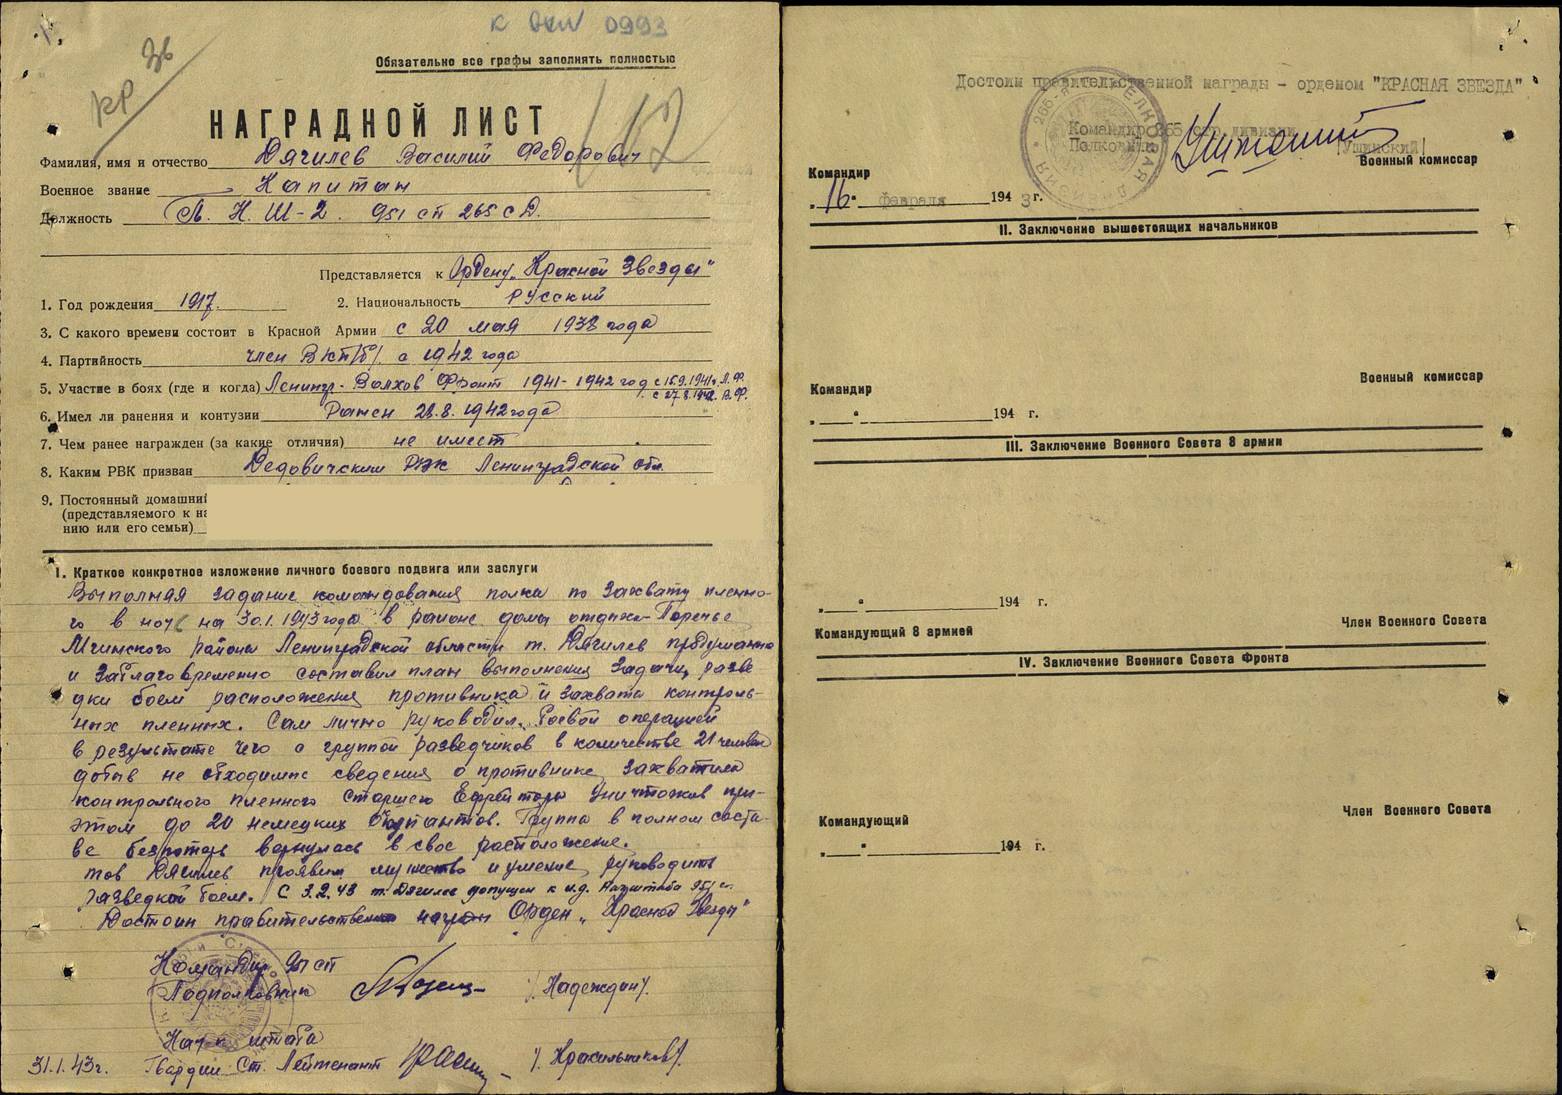 К вхи 0993
КР 36
Обязательно все графы заполнять полностью
НАГРАДНОЙ ЛИСТ
Фамилия, имя и отчество Дягилев Василий Федорович
Военное звание Капитан
Должность П. Н. Ш-2. 951 сп 265 сД.
Представляется к Ордену „Красной Звезды"
1. Год рождения 1917. 2. Национальность русский
3. С какого времени состоит в Красной Армии с 20 мая 1938 года
4. Партийность член ВКП/б/. с 1942 года
5. Участие в боях (где и когда) Ленингр-Волхов Фронт 1941-1942 год с 15.9.1941г. Л.Ф.
с 27.8.1942. В.Ф.
6. Имел ли ранения и контузии Ранен 28.8.1942 года
7. Чем ранее награжден (за какие отличия) не имеет
8. Каким РВК призван Дедовичским РВК Ленинградской обл.
9. Постоянный домашний
(представляемого к на
нию или его семьи)
I. Краткое конкретное изложение личного боевого подвига или заслуги
Выполняя задание командования полка по захвату пленно-
го в ночь на 30.1.1943 года в районе дома отдыха-Поречье
Мгинского района Ленинградской области т. Дягилев продуманно
и заблаговременно составил план выполнения задачи, разве
дки боем расположения противника и захвата контроль-
ных пленных. Сам лично руководил боевой операцией
в результате чего с группой разведчиков в количестве 21 человек
добыв необходимые сведения о противнике, захватила
контрольного пленного старшего Ефрейтора уничтожив при-
этом до 20 немецких Окупантов. Группа в полном соста-
ве без потерь вернулась в свое расположение.
тов Дягилев проявил мужество и умение руководить
разведкой боем. С 3.2.43 т. Дягилев допущен к и.д. Начштаба 951 сп
Достоин правительственной награды Орден „Красной Звезды"
Командир 951 сп
Подполковник /Надеждин/.
Нач-к штаба
31.1.43г. Гвардии Ст. Лейтенант /Красильников/.
Достоин правительственной награды - орденом "КРАСНАЯ ЗВЕЗДА"
Командир 265 стр. дивизии
Полковник /Ушинский/
Командир Военный комиссар
„16" февраля 1943 г.
II. Заключение вышестоящих начальников
Командир Военный комиссар
„ " 194 г.
III. Заключение Военного Совета 8 армии
„ " 194 г.
Командующий 8 армией Член Военного Совета
IV. Заключение Военного Совета Фронта
Командующий Член Военного Совета
„ " 194 г.